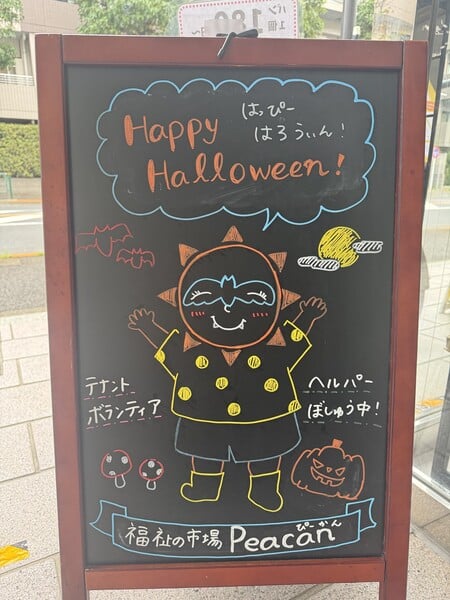 パン
1個
180
Happy
はっぴー
はろうぃん!
Halloween!
テナント
ボランティア
ヘルパー
ぼしゅう中!
福祉の市場 Peacan
ぴーかん